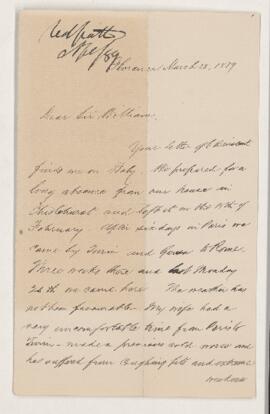 Redpath
Florence March 28, 1889
Dear Sir William,
Your letter of
finds me in Italy. We prepared for a
long absence from our house in
Chislehurst and left it on the 14th of
February. After six days in Paris we
came by Turin and Genoa to Rome.
Three weeks there and last Monday
25th we came here. The weather has
not been favourable. My wife had a
very uncomfortable time from Paris to
Turin - made a previous cold worse and
has suffered from coughing fits and extreme
weakness